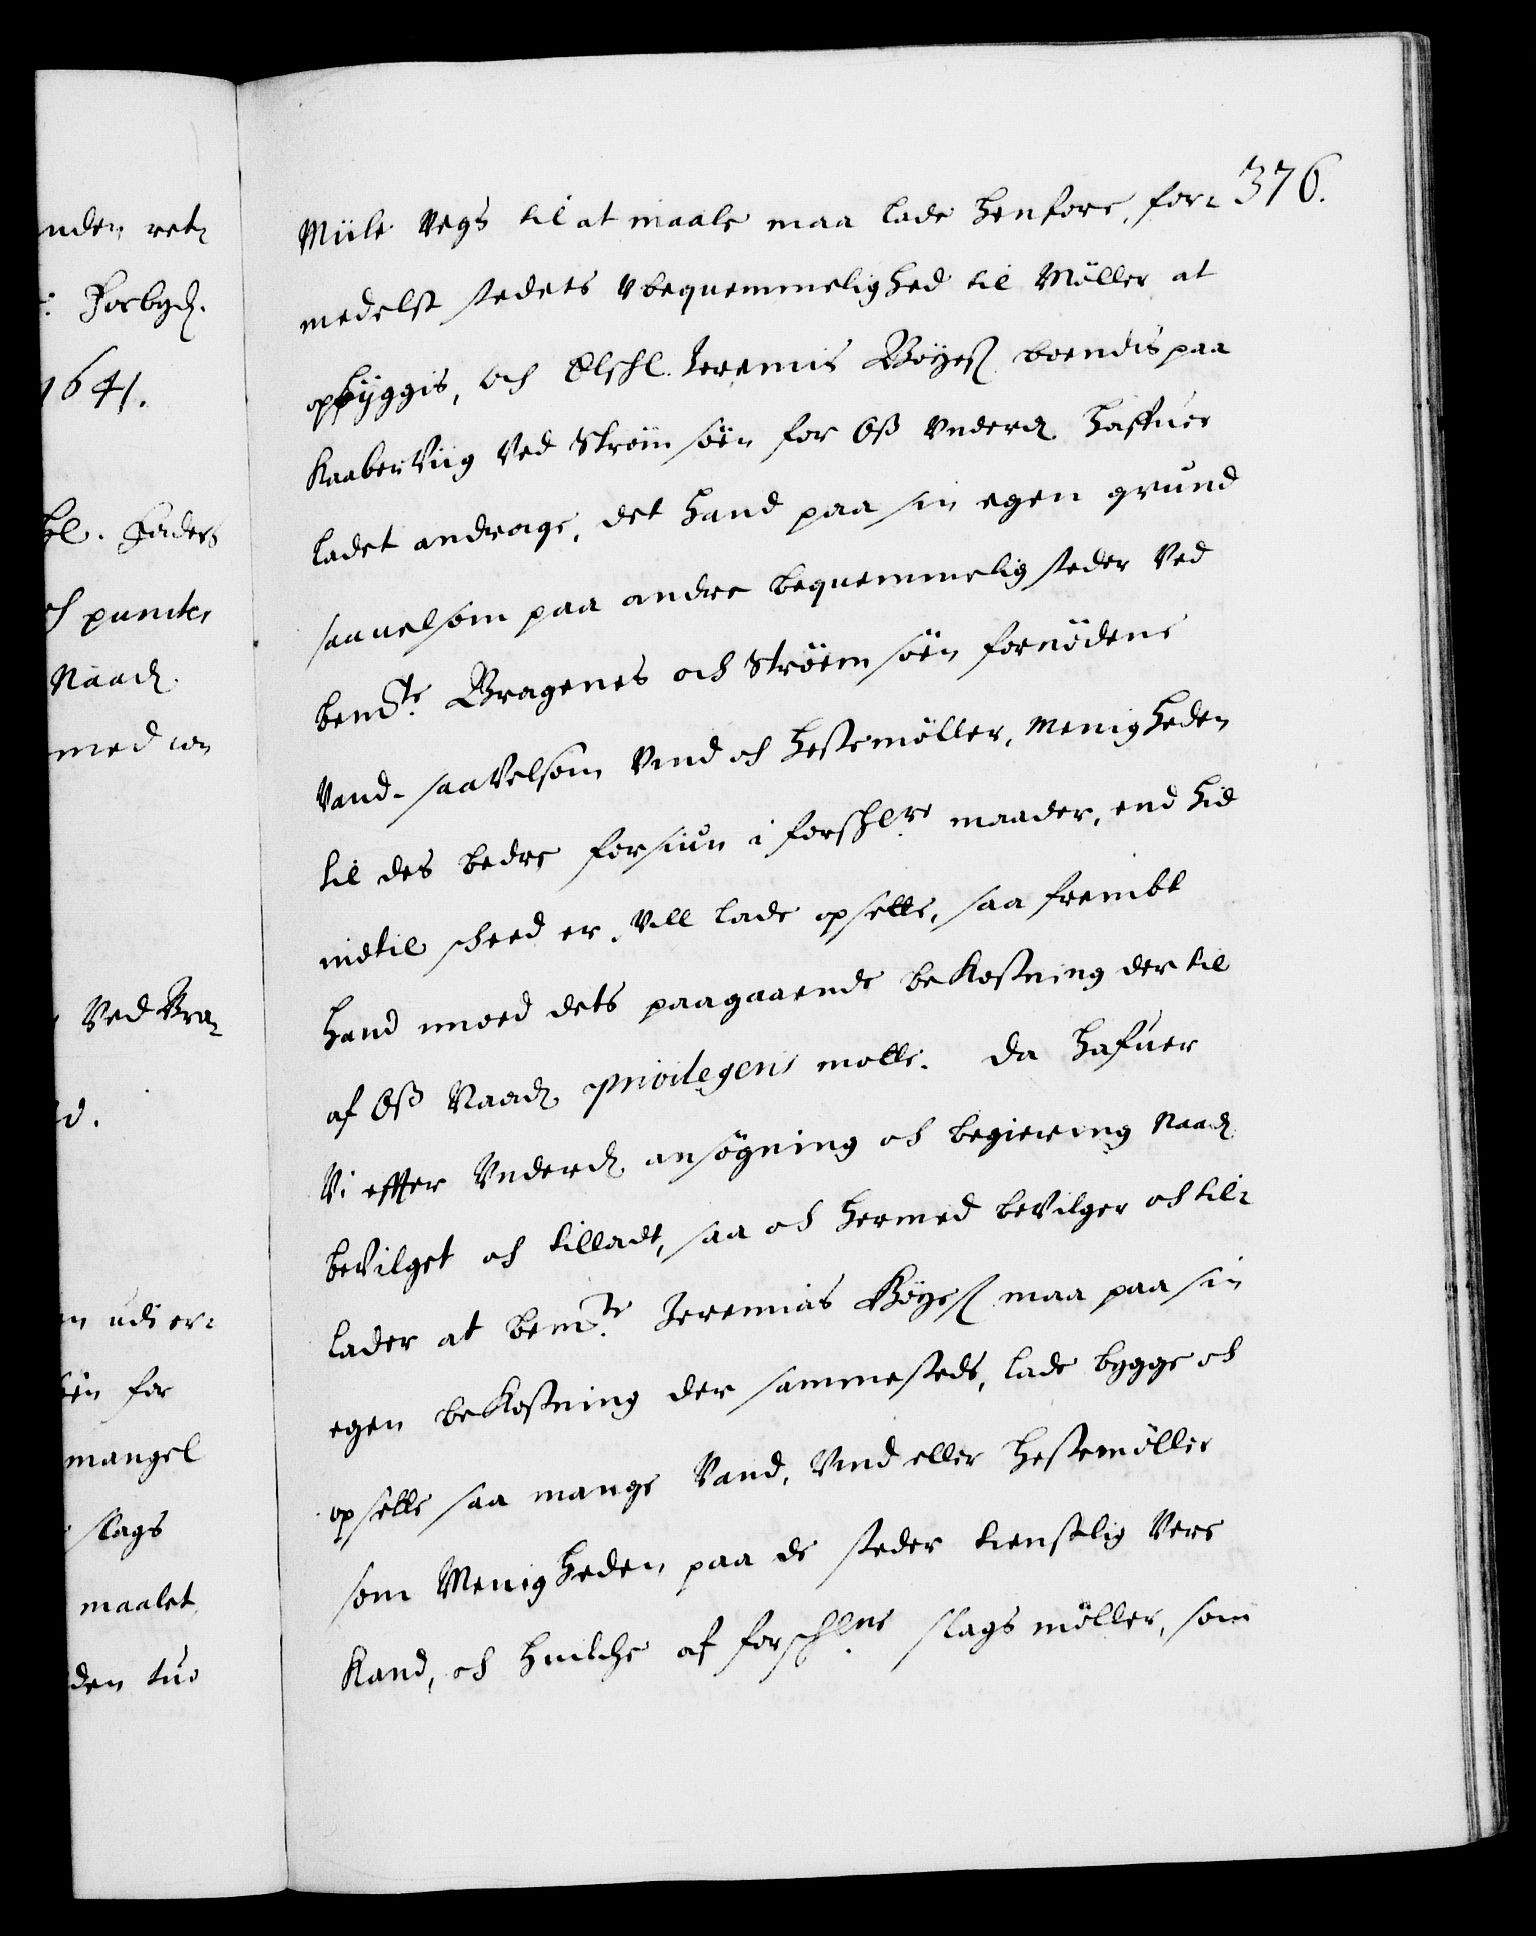 nden ret
Forbyd.
1641.
hl. Faders
och puncter
Naad
med
Ved Bra-
d.
en udi er-
söen for
mangel
slags
maalet
den tuo
376.
Miile Vegs til at maale maa lade henføre, for-
medelst stedets Vbequemmelighed til Møller at
opbyggis, Och Elschl. Jeremis Böyes boendis paa
Kaaberviig Ved Strømsöen for Oss Vnderd. haffuer
ladet andrage, det hand paa sin egen grund
saauelsom paa andre bequemmelig steder Ved
bemte. Bragenes och Strömsöen fornödene
Vand- saavelsom Vind och hestemöller, Menigheden
til des bedre forsiun i forschrne maader, end hid
indtil scheed er, Vill lade opsette, saa frembt
hand imoed dets paagaaende bekostning der til
af Oss Naad. privilegeris motte. Da hafuer
Vi efter Vnderd. ansögning och begiering Naad.
bevilget och tilladt, saa och hermed bevilger och til-
lader at bemte. Jeremias Böyes maa paa sin
egen bekostning der sammesteds, lade bygge och
opsette saa mange Vand, Vind eller hestemöller
som Menigheden paa de steder tienstlig Vere
Kand, och huilche af forschrne slags möller, som